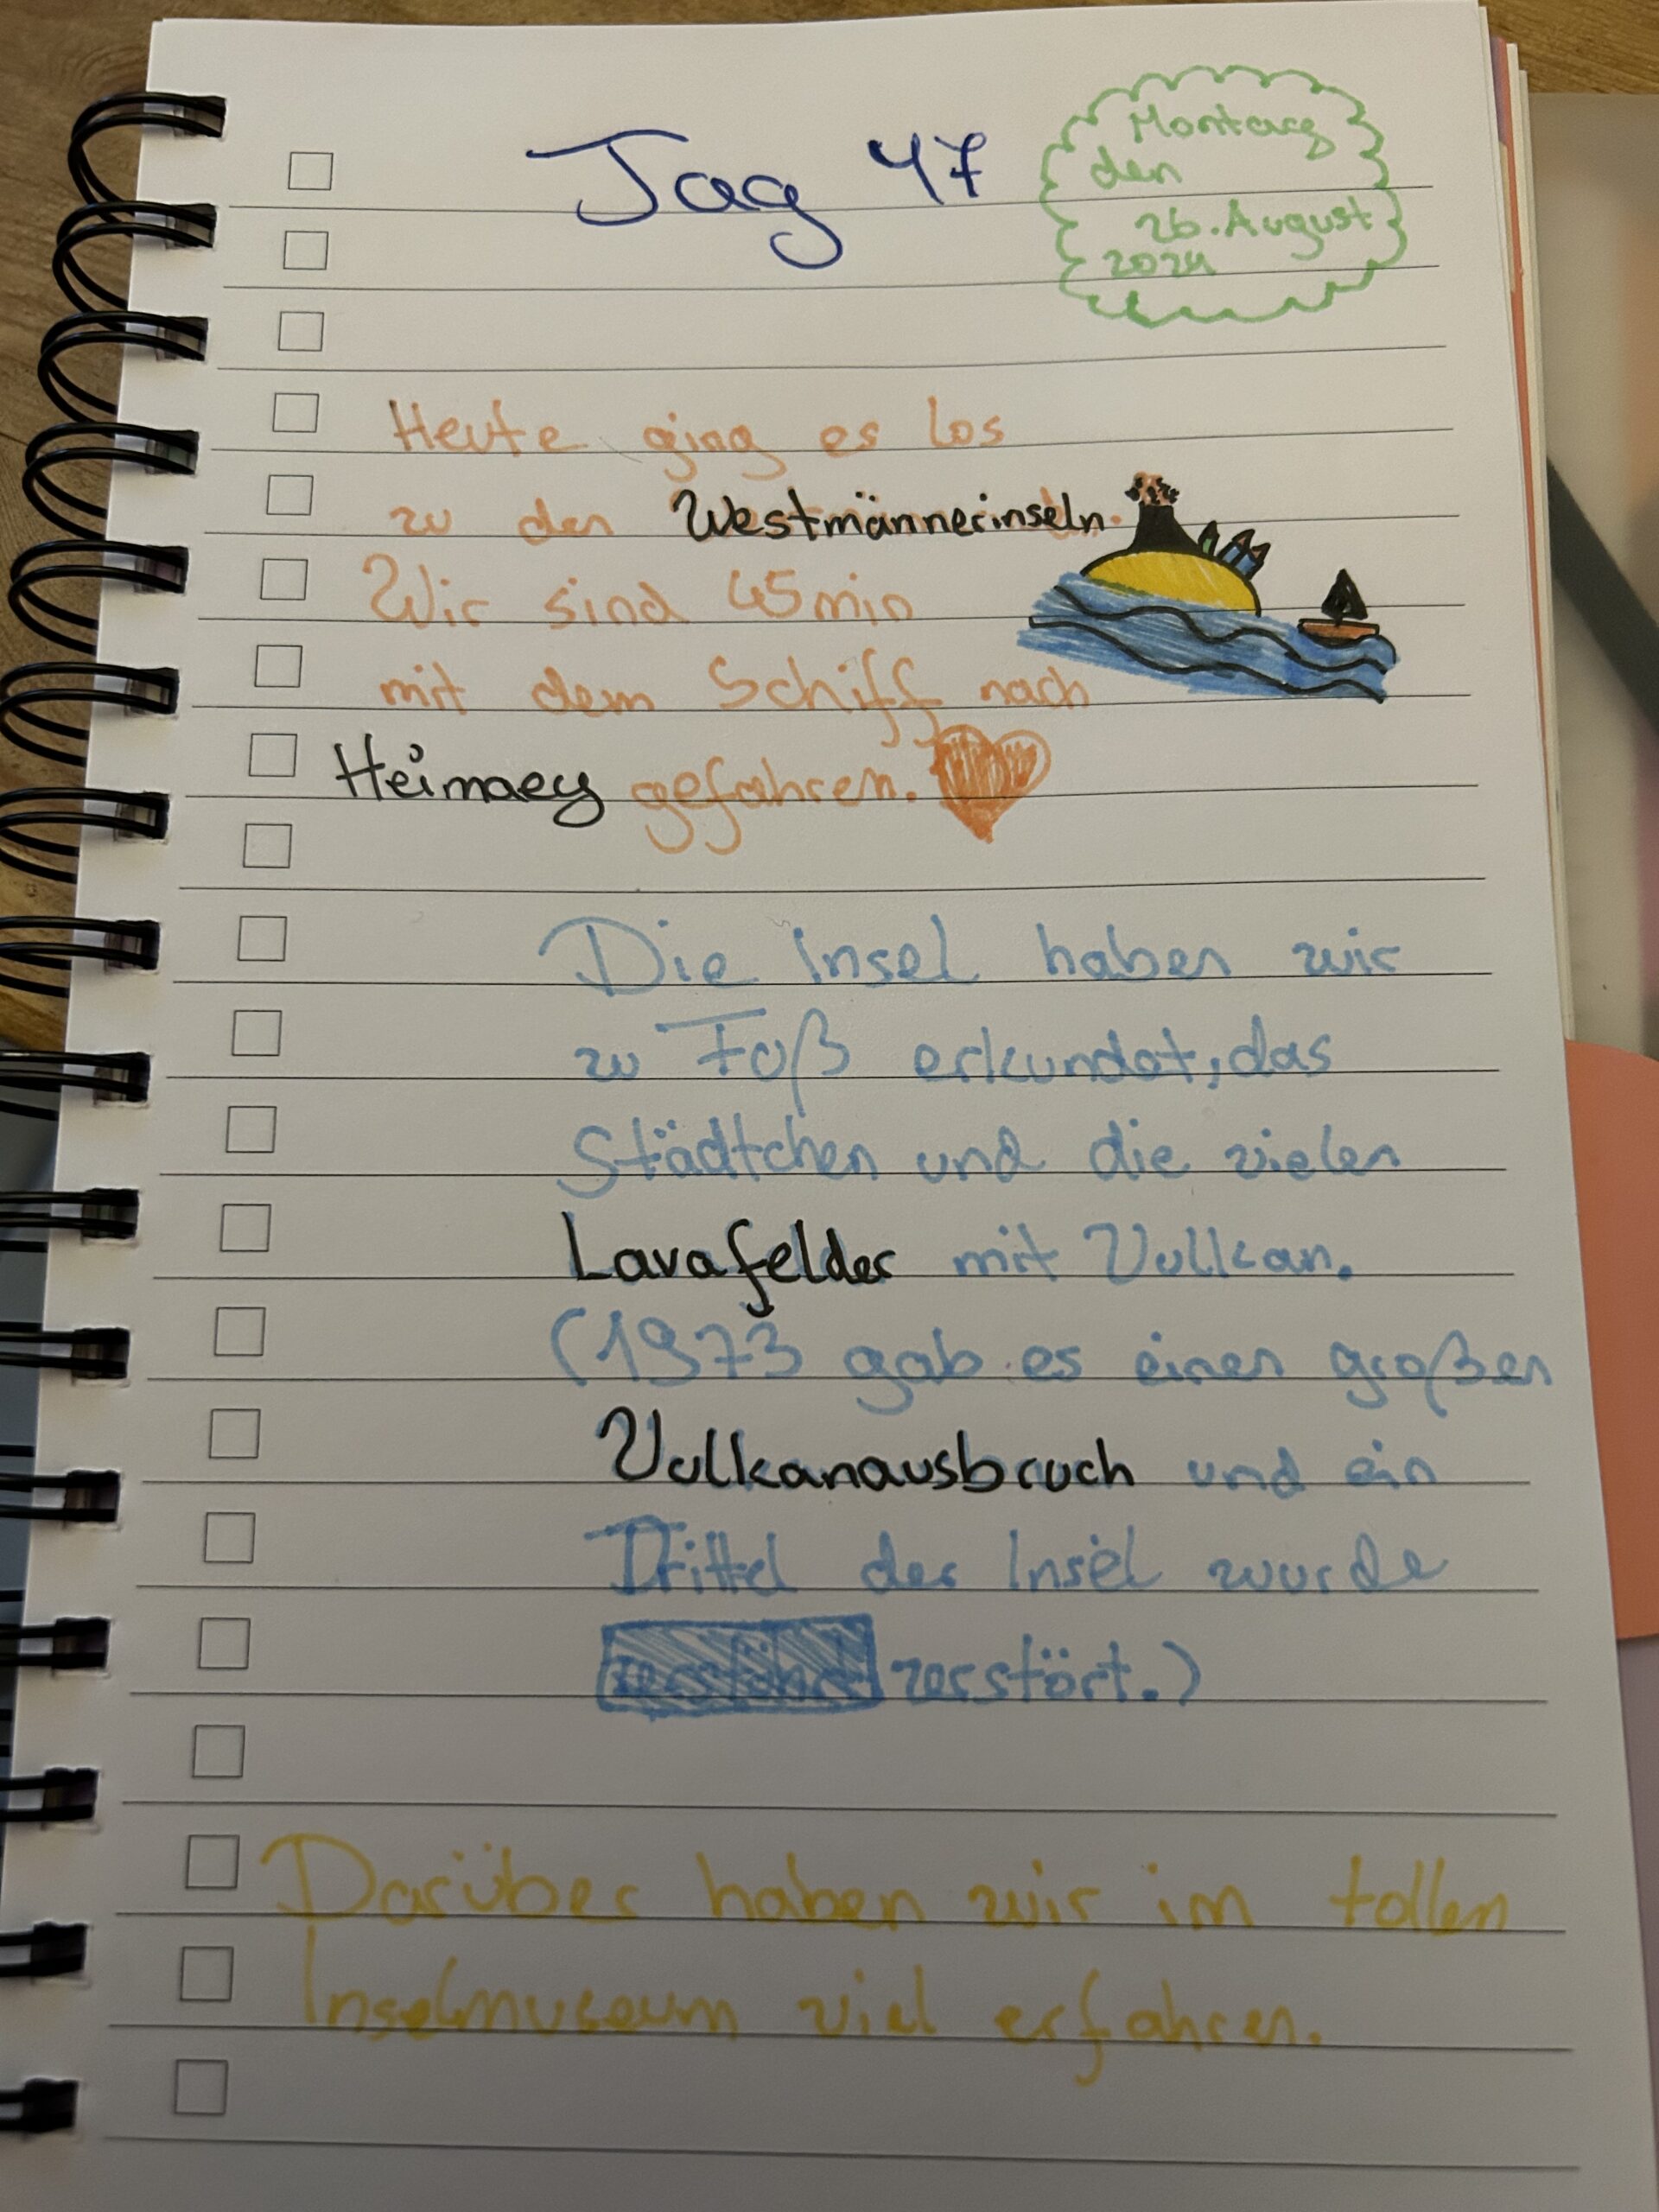 Tag 47
Montag
den
26. August
2024
Heute ging es los
zu den Westmännerinseln.
Wir sind 45min
mit dem Schiff nach
Heimaey gefahren.
Die Insel haben wir
zu Fuß erkundet, das
Städtchen und die vielen
Lavafelder mit Vulkan.
(1973 gab es einen großen
Vulkanausbruch und ein
Drittel der Insel wurde
zerstört.)
Darüber haben wir im tollen
Inselmuseum viel erfahren.